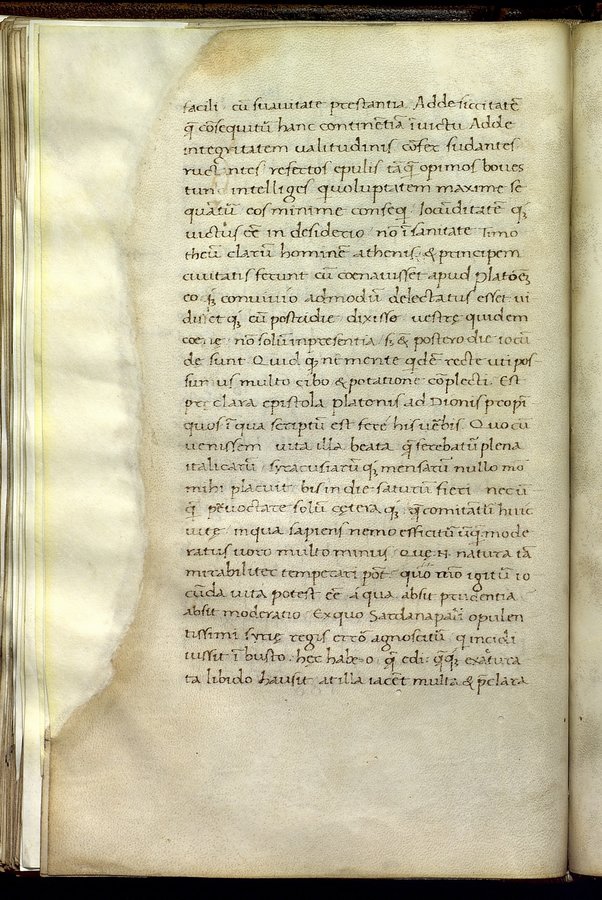 facili cū suauitate prestantia. Adde siccitatē
q̄ cōsequitur̄ hanc continētiā ī uictu Adde
integritatem ualitudinis cōfer sudantes
ructantes refectos epulis tāq̄ opimos boues
tunc intelliges quoluptatem maxime se
quātur̄ eos minime consequi Iocūditatē q;
uictus eē in desiderio / nō ī sanitate Timo
theū clarū hominē athenis, & principem
ciuitatis ferunt cū coenauisset apud Platōēz
eo q; conuiuio admodū delectatus esset ui
disset q; eū postridie / dixisse uestrę quidem
coenę nōsolū inpresentia / s; & postero die iocū
de sunt Quid q; ne mente qdē recte uti pos
sumus multo cibo & potatione cōplecti. Est
preclara epistola Platonis ad Dionis propī
quos ī qua scriptū est fere his uerbis. Quo cū
uenissem uita illa beata q̄ ferebatur̄ plena
italicarū / syracusiarū q; mensarū nullo mo
mihi placuit bis in die saturū fieri nec ū
q̄ pernoctare solū cętera q; q̄ comitatur̄ huic
uitę / in qua sapiens nemo efficitur̄ ūq̄ mode
ratus uero multo minus Quę .n. natura tā
mirabiliter temperari pōt quo mō igitur̄ io
cūda uita potest eē a qua absit prudentia
absit moderatio Ex quo Sardanapali opulen
tissimi syrię regis error agnoscitur̄ q incidi
iussit ī busto. hęc habeo q̄ edi q̄q; exatura
ta libido hausit at illa iacēt multa & p̄clara